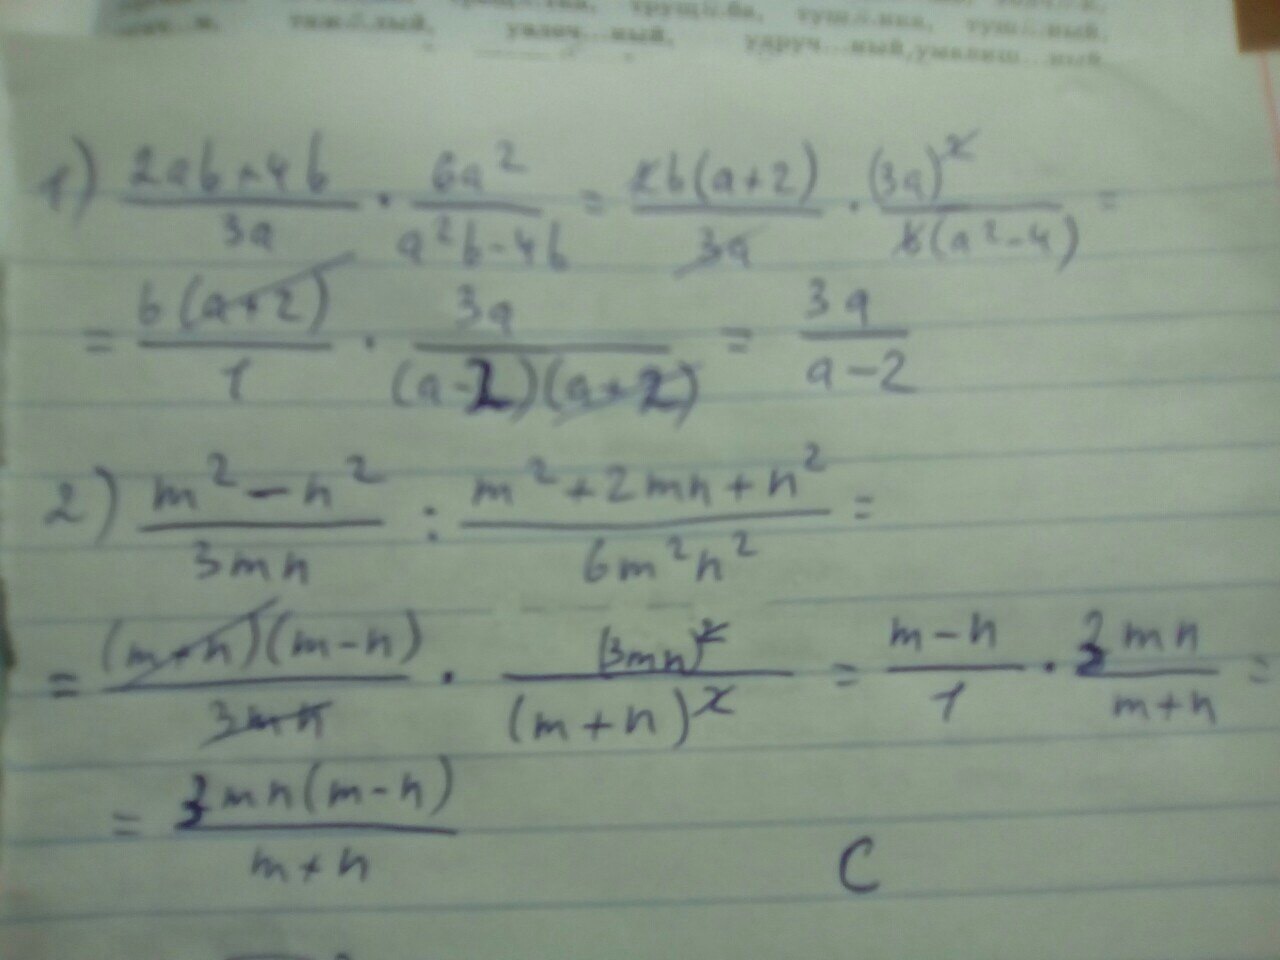 тяж...лый, уключ...ный, удруч...ный, умалиш...ный
1) (2ab+4b)/(3a) · (6a²)/(a²b-4b) = (2b(a+2))/(3a) · (3a)²/(b(a²-4)) =
= (b(a+2))/1 · (3a)/((a-2)(a+2)) = (3a)/(a-2)
2) (m²-n²)/(3mn) : (m²+2mn+n²)/(6m²n²) =
= ((m+n)(m-n))/(3mn) · (3mn)²/(m+n)² = (m-n)/1 · (3mn)/(m+n) =
= (3mn(m-n))/(m+n)
C